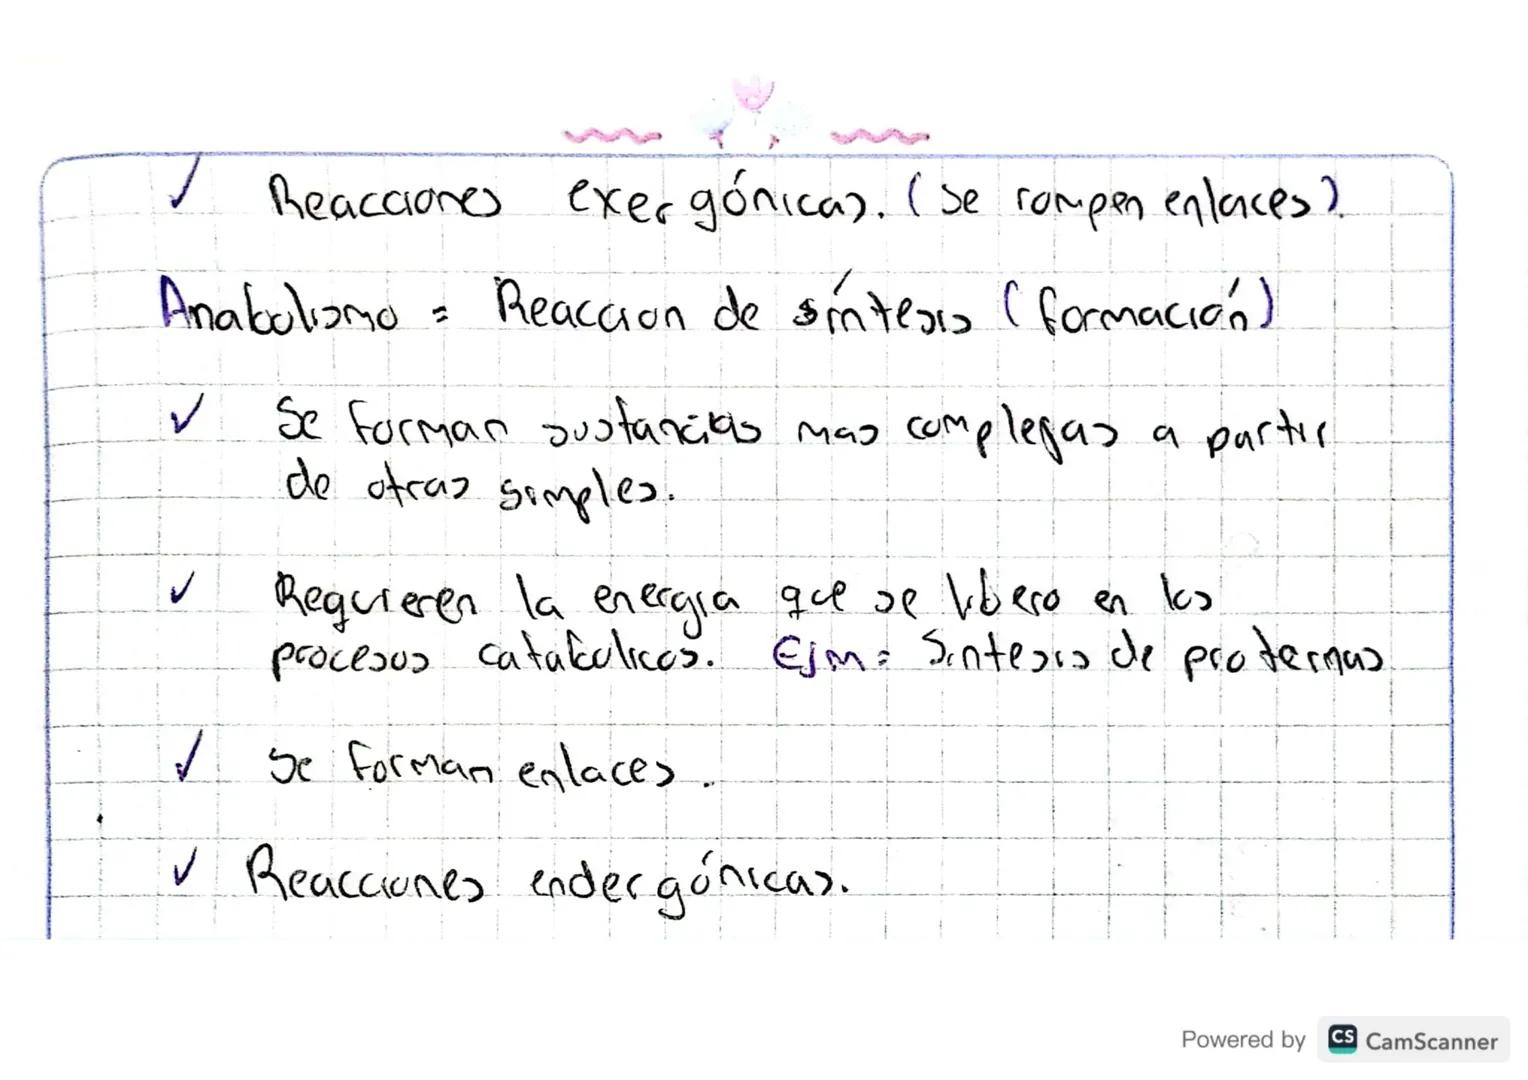 ✓ Reacciones exergónicas. (se rompen enlaces).
Anabolismo = Reaccion de síntesis (formación)
✓ Se forman sustancias mas complejas a partir
de otras simples.
✓ Requieren la energia que se libero en los
procesos catabolicos. Ejm= Sintesis de proteinas
✓ Se forman enlaces.
✓ Reacciones endergónicas.
Powered by CS CamScanner